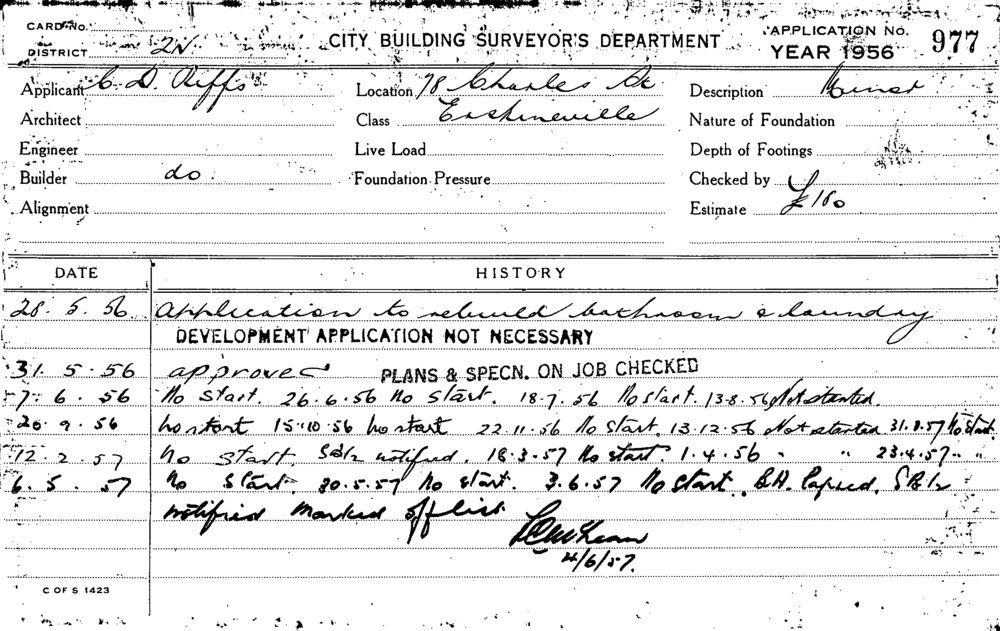 CARD No.
DISTRICT 2N
CITY BUILDING SURVEYOR'S DEPARTMENT
APPLICATION No. 977
YEAR 1956
Applicant C. D. Riffs Location 78 Charles St Description
Architect Class Erskineville Nature of Foundation
Engineer Live Load Depth of Footings
Builder do. Foundation Pressure Checked by
Alignment Estimate £180
DATE HISTORY
28. 5. 56 Application to rebuild bathroom & laundry
DEVELOPMENT APPLICATION NOT NECESSARY
31. 5. 56 approved PLANS & SPECN. ON JOB CHECKED
7. 6. 56 No start. 26.6.56 No start. 18.7.56 No start. 13.8.56 Not started
20. 9. 56 no start 15.10.56 no start 22.11.56 No start. 13.12.56 Not started 31.1.57 No start.
12. 2. 57 No start. notified. 18.3.57 No start 1.4.56 " " 23.4.57 " "
6. 5. 57 No start. 30.5.57 No start. 3.6.57 No start. B.A. Lapsed.
notified marked off list
4/6/57.
C OF S 1423